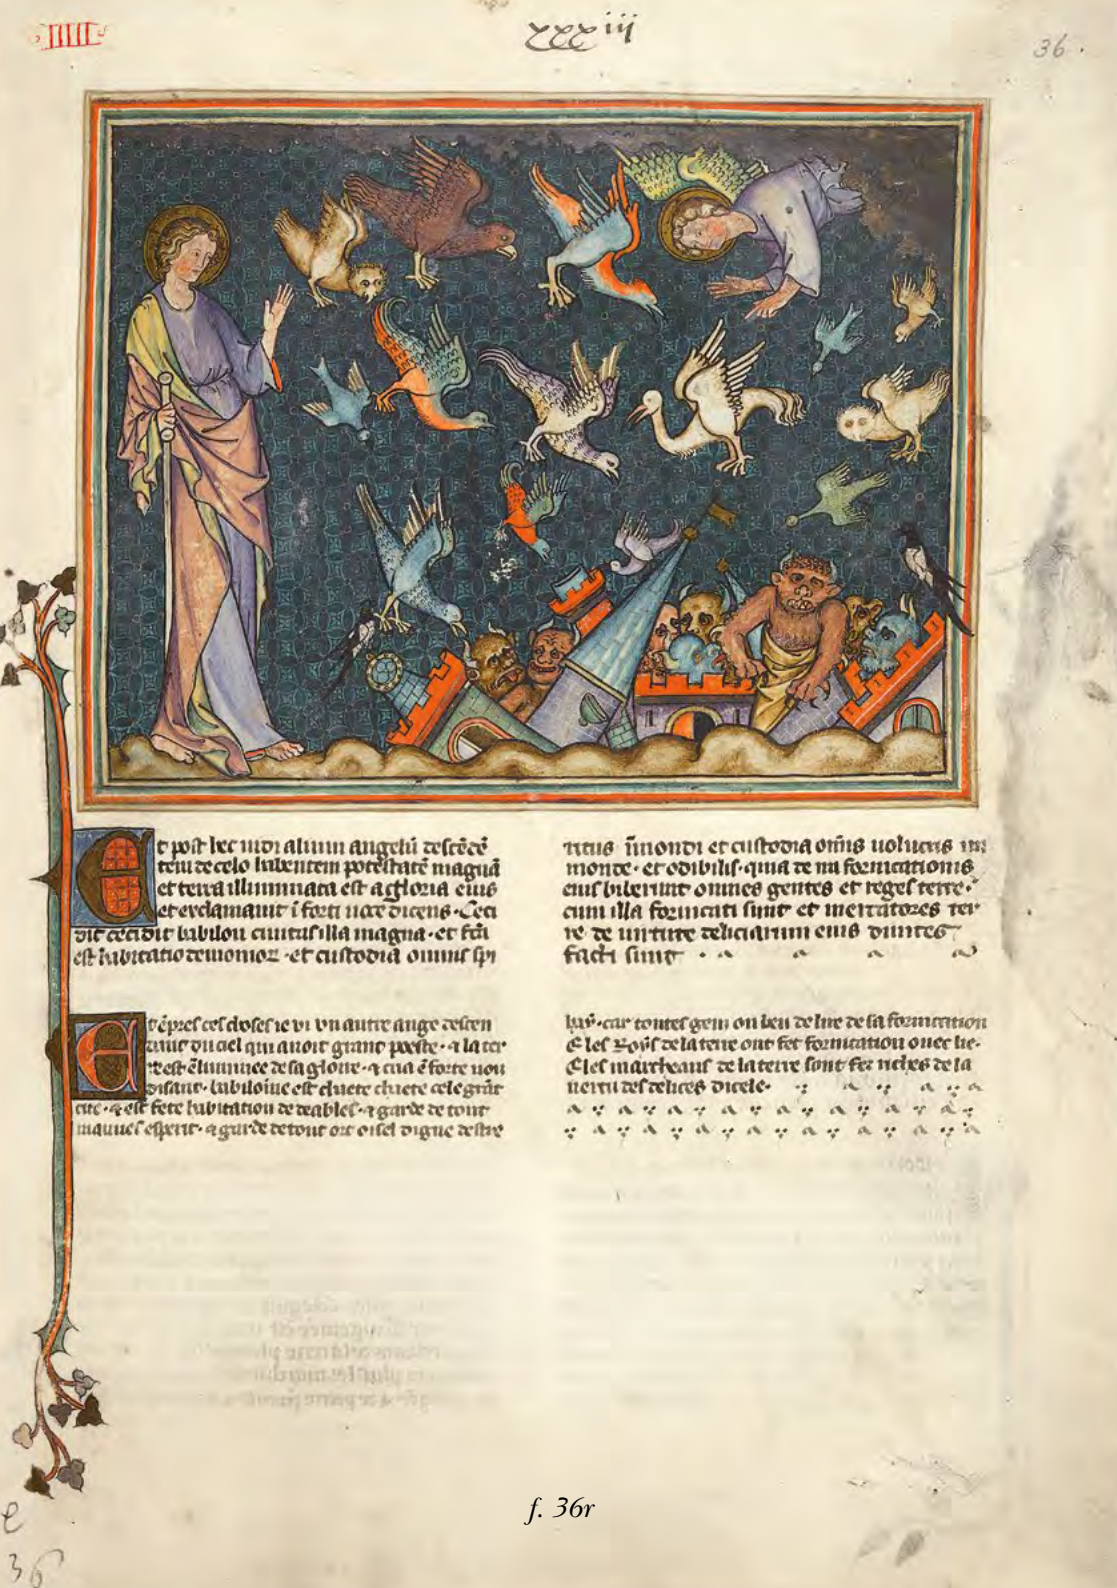 ·IIIII·
xxxiii
36.
Et post hec uidi alium angelũ descẽdẽ
tem de celo habentem potestatẽ magnã
et terra illuminata est a gloria eius
et exclamauit ĩ forti uoce dicens· Ceci
dit cecidit babilon ciuitas illa magna· et fcã
est habitatio demonioꝝ· et custodia omnis spi
ritus ĩmondi et custodia om̃is uolucris im
monde· et odibilis· quia de ira fornicationis
eius biberunt omnes gentes et reges terre·
cum illa fornicati sunt et mercatores ter
re de uirtute deliciarum eius diuites
facti sunt ·
Et ẽpres ces choses ie vi vn autre ange descen
dant du ciel qui auoit grant poeste· ⁊ la ter
re est ẽluminee de sa gloire· ⁊ cria ẽ forte uois
disant· babiloine est cheete cheete cele grãt
cite· ⁊ est fete habitation de deables· ⁊ garde de tout
mauues esperit· ⁊ garde de tout ort oisel digne destre
hay· car toutes gens on beu de lire de sa fornication
⁊ les Roys de la terre ont fet fornication ouec lie·
⁊ les marcheans de la terre sont fez riches de la
uertu des delices dicele·
f. 36r
e
36